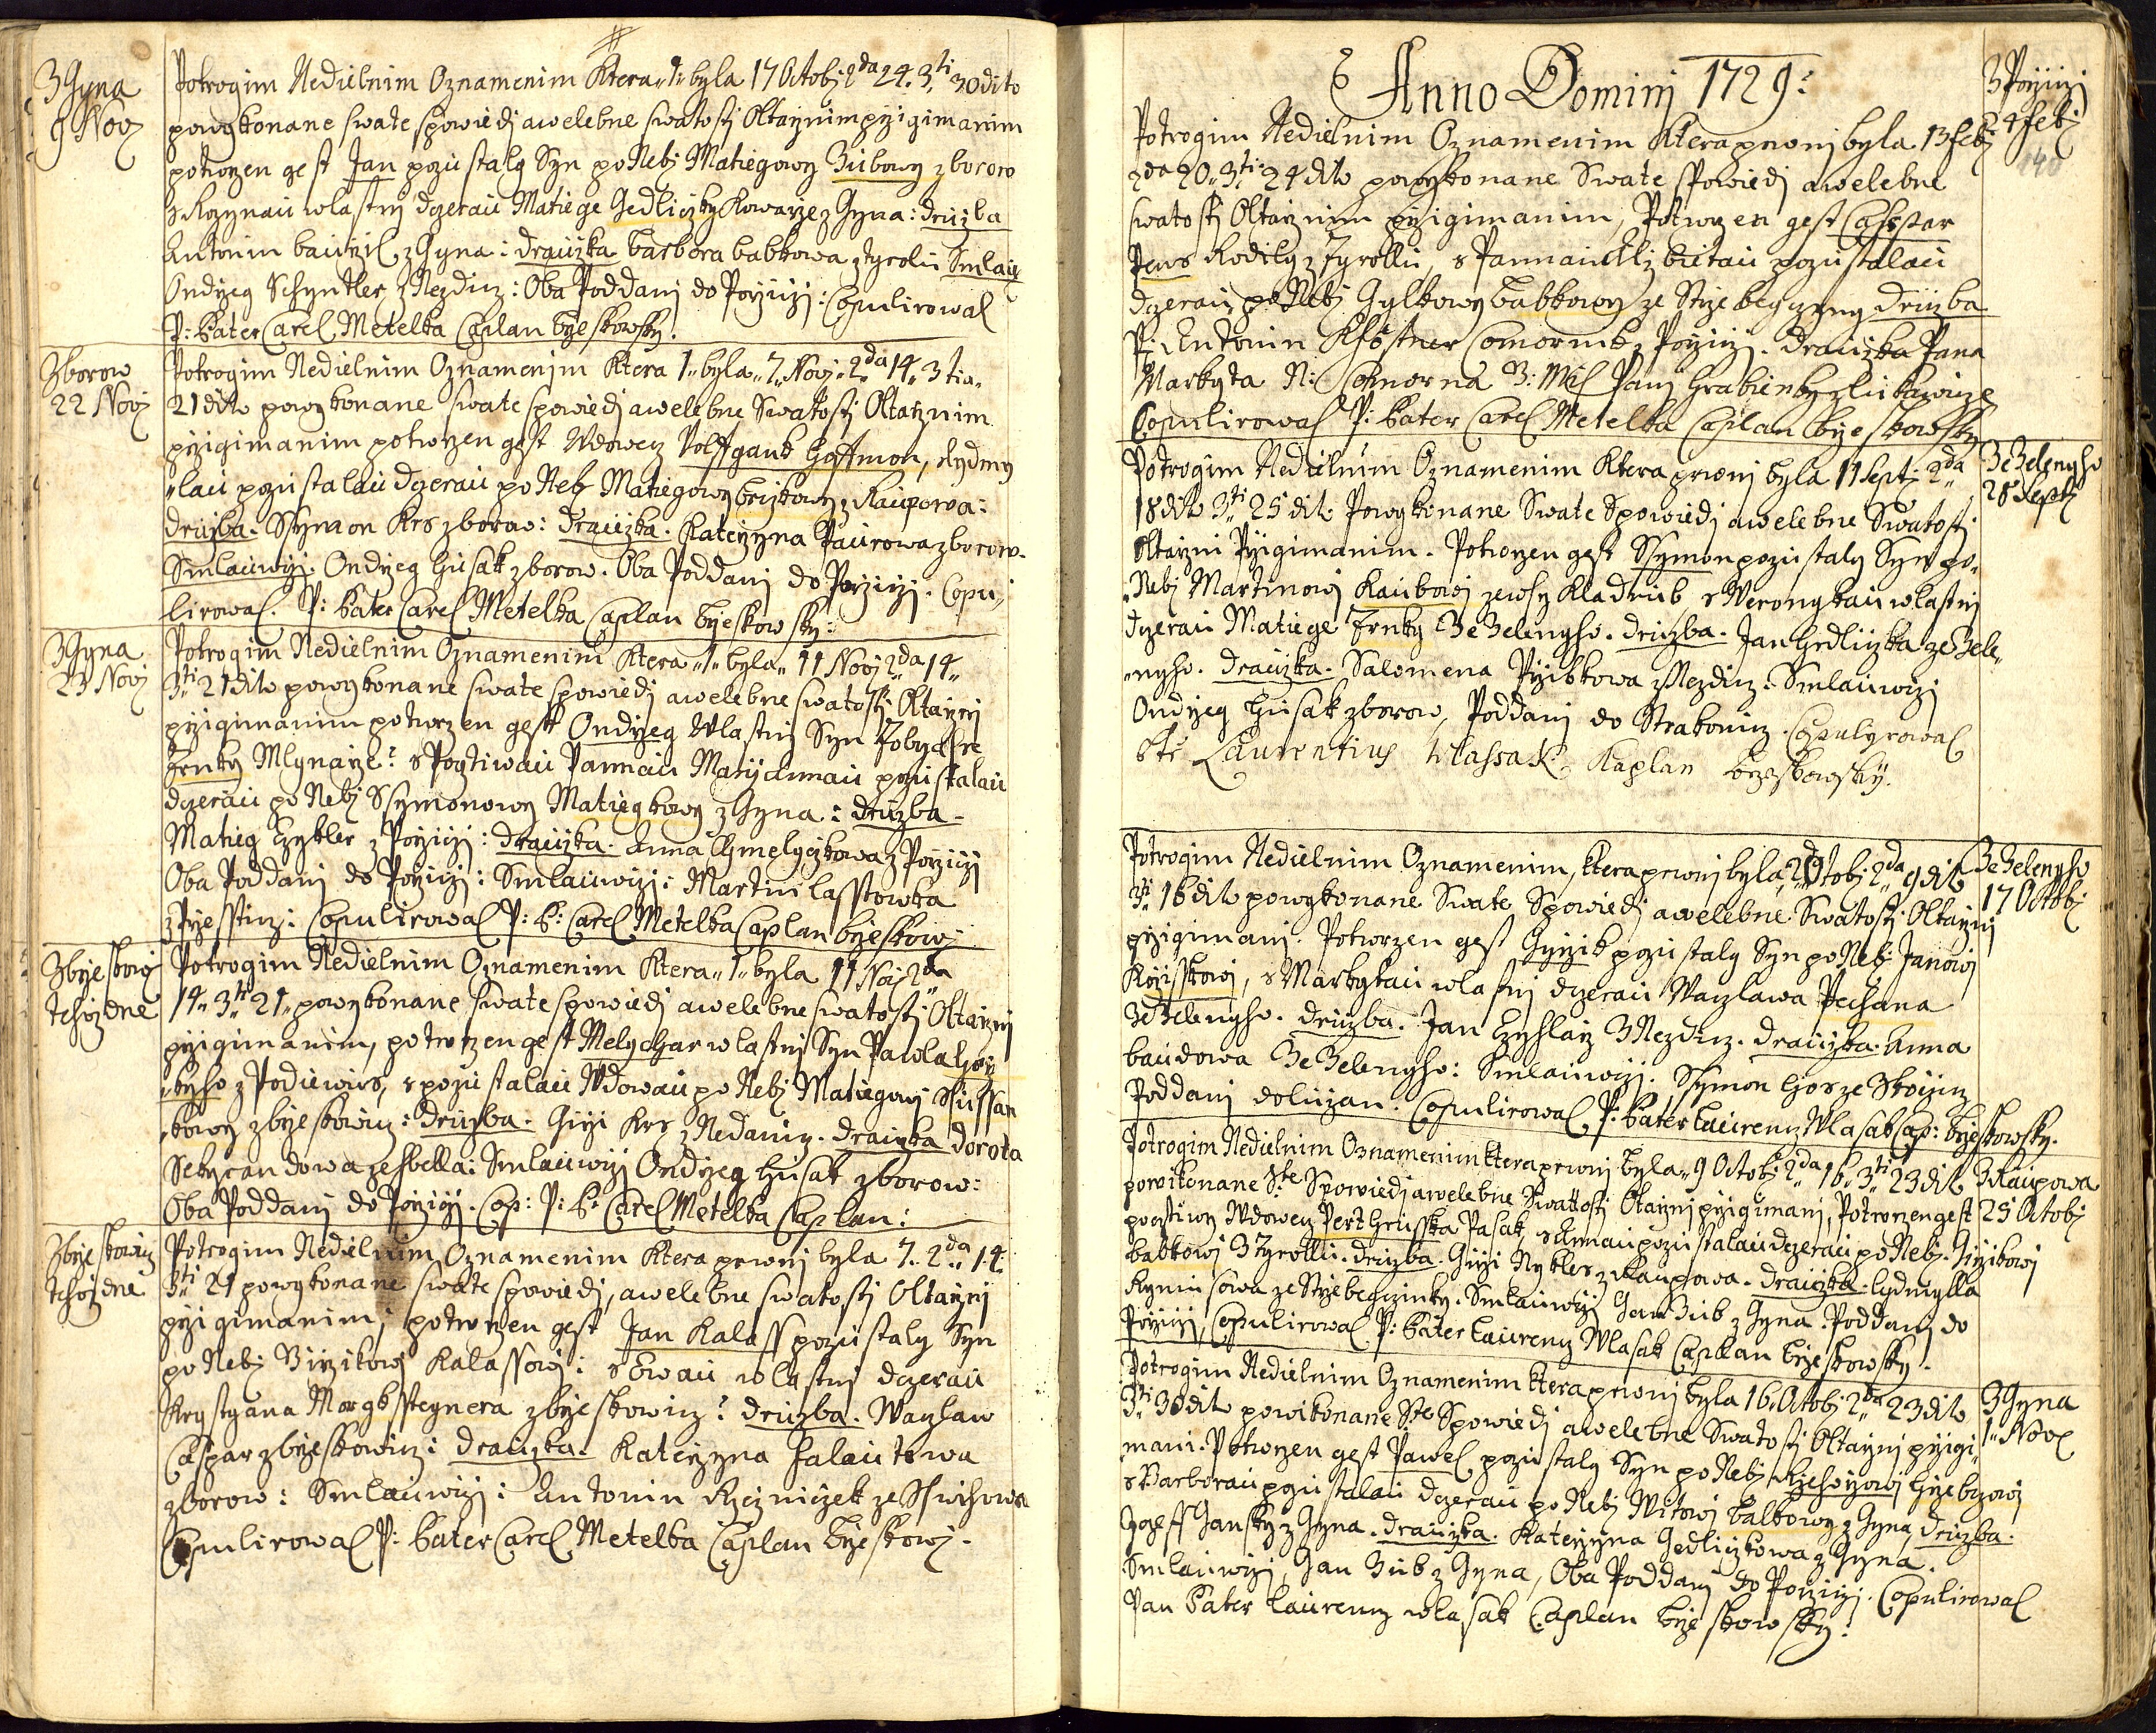 3 Gyna
9 Novj
Potrogim Nedielnim Oznamenim Ktera "1" byla 17 Octobj 2da 24. 3ti 30 dito
powykonane swate spowiedj awelebne swatostj Oltarznim przigimanim
potwrzen gest Jan pozustaly Syn po Nebj Matiegowy Zubowy zborow
s Rozynau wlastnj dczerau Matiege Gedliczky Kowarze z Gyna: druzba
Antonin bauzil z Gyna: drauzka barbora babkowa z tyrolu Smlau
Ondrzeg Schyntler z Nezdiz: Oba Poddanj do Porziczj: Copulirowal
P: Pater Carel Metelka Caplan brzeskowsky.
Zborow
22 Novj
Potrogim Nedielnim Oznamenjm Ktera 1" byla "7" Novj "2da 14" 3tia"
21 dito powykonane swate spowiedj awelebne Swatostj Oltarznim
przigimanim potwrzen gest Wdowecz Wolffgank Hoffmon, s Lydmy
"lau pozustalau dczerau po Neb Matiegowy brizkowy z Raczowa:
druzba. Ssymon Krs zborow: Drauzka. Katerzyna Paurowa zborow.
Smlauwczj. Ondrzeg Husak zborow. Oba Poddanj do Porziczj. Copu"
lirowal. P: Pater Carel Metelka Caplan brzeskowsky:
3 Gyna
23 Novj
Potrogim Nedielnim Oznamenim Ktera "1" byla "11 Novj 2da 14"
3ti "21 dito powykonane swate spowiedj awelebne swatostj Oltarznj
przigimanim potwrzen gest Ondrzeg Wlastnj Syn Tobyasse
Frnky Mlynarze: s Poctiwau Pannau Marij Annau pozustalau
dczerau po Nebj Ssymonowy Matiegkowy z Gyna: druzba.
Matieg Czykler z Porziczj: drauzka. Anna Chmelyczkowa z Porziczj
Oba Poddanj do Porziczj: Smlauwczj: Martin lasstowka
z Brzesstiz: Copulirowal P: P: Carel Metelka Caplan brzeskowj
Zbrzeskowj
tehoz dne
Potrogim Nedielnim Oznamenim Ktera "1" byla 11 Novj 2da
14" 3ti "21" powykonane swate spowiedj awelebne swatostj Oltarznj
przigimanim, potwrzen gest Melychar wlastnj Syn Pawla Hor
"kyho z Podiewus, s pozustalau Wdowau po Nebj Matiegowj Ssussan
"kowy zbrzeskowicz: druzba. Girzi Krs z Nedanicz. drauzka Dorota
Sekyrandowa ze sbella: Smlauwczj Ondrzeg Husak zborow:
Oba Poddanj do Porziczj. Cop: P: P: Carel Metelka Caplan:
Zbrzeskowicz
tehoz dne
Potrogim Nedielnim Oznamenim Ktera prwnj byla 7. 2da "14.
3ti 21 powykonane swate spowiedj, awelebne swatostj Oltarznj
przigimanim, potwrzen gest Jan Kalass pozustaly Syn
po Nebj Wirzikowj Kalassowj: s Ewau wlastnj dczerau
Krystyana Morgksstegnera zbrzeskowicz: druzba. Wazlaw
Caspar zbrzeskowicz: drauzka. Katerzyna Falautowa
zborow: Smlauwczj: Antonin Rzezniczek ze Sswihowa
Copulirowal P: Pater Carel Metelka Caplan brzeskowj.
Anno Dominj 1729:
3 Porziczj
24 febj
140
Potrogim Nedielnim Oznamenim Ktera prwnj byla 13 febj
2da 20" 3ti 24 dito powykonane Swate Spowiedj awelebne
swatostj Oltarznim przigimanim, Potwrzen gest Casspar
Pens Rodily z Tyrollu, s Pannau Alzbietau pozustalau
dczerau po Nebj Gylkowy babkowy ze Strzebeyczyny druzba
P: Antonin Khöstner Comornik z Porziczj. drauzka Pana
Markyta N: Comorna 3: Mil Panj Hrabienky z lukawicze
Copulirowal P: Pater Carel Metelka Caplan brzeskowsky
Ze Zelenyho
28 Septj
Potrogim Nedielnim Oznamenim Ktera prwnj byla 11 Septj 2da
18 dito 3ti 25 dito Powykonane Swate Spowiedj awelebne Swatostj
Oltarzni Przigimanim. Potwrzen gest Ssymon pozustaly Syn po"
"Nebj Martinowj Kaubowj ze wsy Kladrub, s Werongkau wlastnj
dczerau Matiege Frnky Ze Zelenyho. druzba. Jan Hedliczka ze Zele"
"nyho. drauzka. Salomena Przibkowa z Nezdiz. Smlauwczj
Ondrzeg Husak zborow, Poddanj do Strakonicz. Copulyrowal
Ptr Laurentius Wlassak Kaplan brzeskowsky.
Ze Zelenyho
17 Octobj
Potrogim Nedielnim Oznamenim, ktera prwnj byla, 2 Octobj 2da 9 dito
3ti 16 dito powykonane Swate Spowiedj awelebne Swatostj Oltarznj
przigimanj. Potwrzen gest Girzik pozustaly Syn po Nebj Janowj
Rozisskowj, s Markytau wlastnj dczerau Wazlawa Pechana
Ze Zelenyho. druzba. Jan Czyhlarz Z Nezdiz. drauzka. Anna
baudowa Ze Zelenyho: Smlauwczj. Ssymon Hos ze Skocziz
Poddanj doluzan. Copulirowal P: Pater Laurenz Wlasak Cap: brzeskowsky.
Z Raupowa
25 Octobj
Potrogim Nedielnim Oznamenim Ktera prwnj byla "9 Octobj 2da "16" 3ti 23 dito
powikonane Ste Spowiedj awelebne Swattostj Oltarznj przigimanj, Potwrzen gest
poctiwy Wdowecz Pert Hrusska Pasak, s Annau pozustalau dczerau po Nebj. Girzikowj
babkowj Z Tyrollu. druzba. Girzi Nykles z Raupowa. drauzka. lydmylla
Rymusowa ze Strzebeyczinky. Smlauwczj Jan Zub z Gyna. Poddanj do
Porziczj, Copulirowal P: Pater Laurenz Wlasak Caplan brzeskowsky.
3 Gyna
1" Novj
Potrogim Nedielnim Oznamenim Ktera prwnj byla 16. Octobj 2da 23 dito
3ti 30 dito powikonane Ste Spowiedj awelebne Swatostj Oltarznj przigi"
mani. Potwrzen gest Pawel pozustaly Syn po Nebj Rzehorzowj Hrzebczowj
s Barborau pozustalau dczerau po Nebj Witowj balkowy z Gyna, druzba.
Jozeff Hansky z Gyna. drauzka. Katerzyna Gedliczkowa z Gyna.
Smlauwczj, Jan Zub z Gyna, Oba Poddanj do Porziczj. Copulirowal
Pan Pater Laurenz wlasak Caplan brzeskowsky: